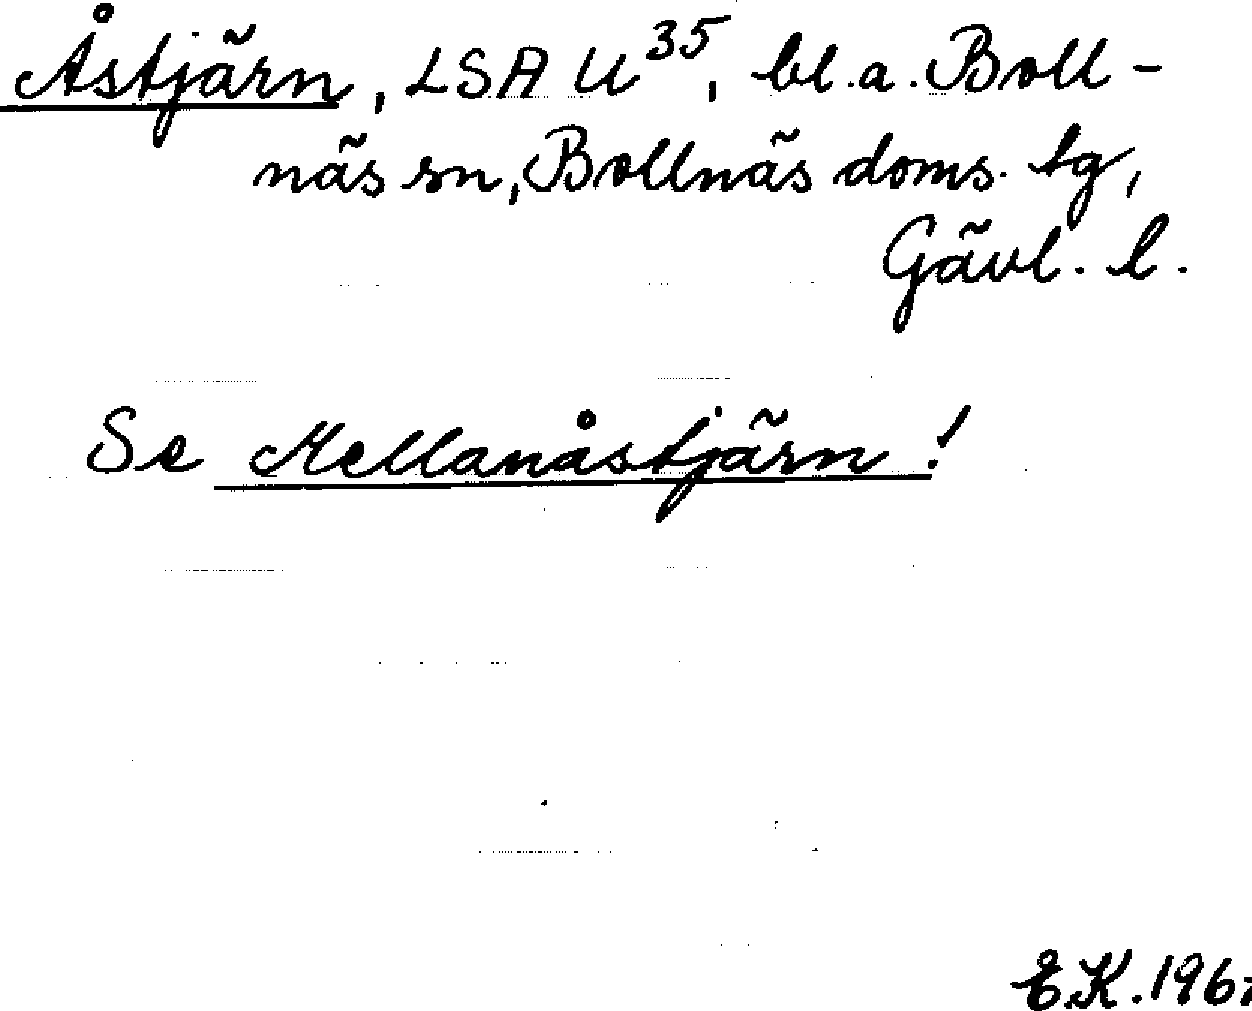 Åstjärn, LSA U35, bl.a. Boll-
näs sn, Bollnäs doms. tg,
Gävl. l.
Se Mellanåstjärn!
E.K.